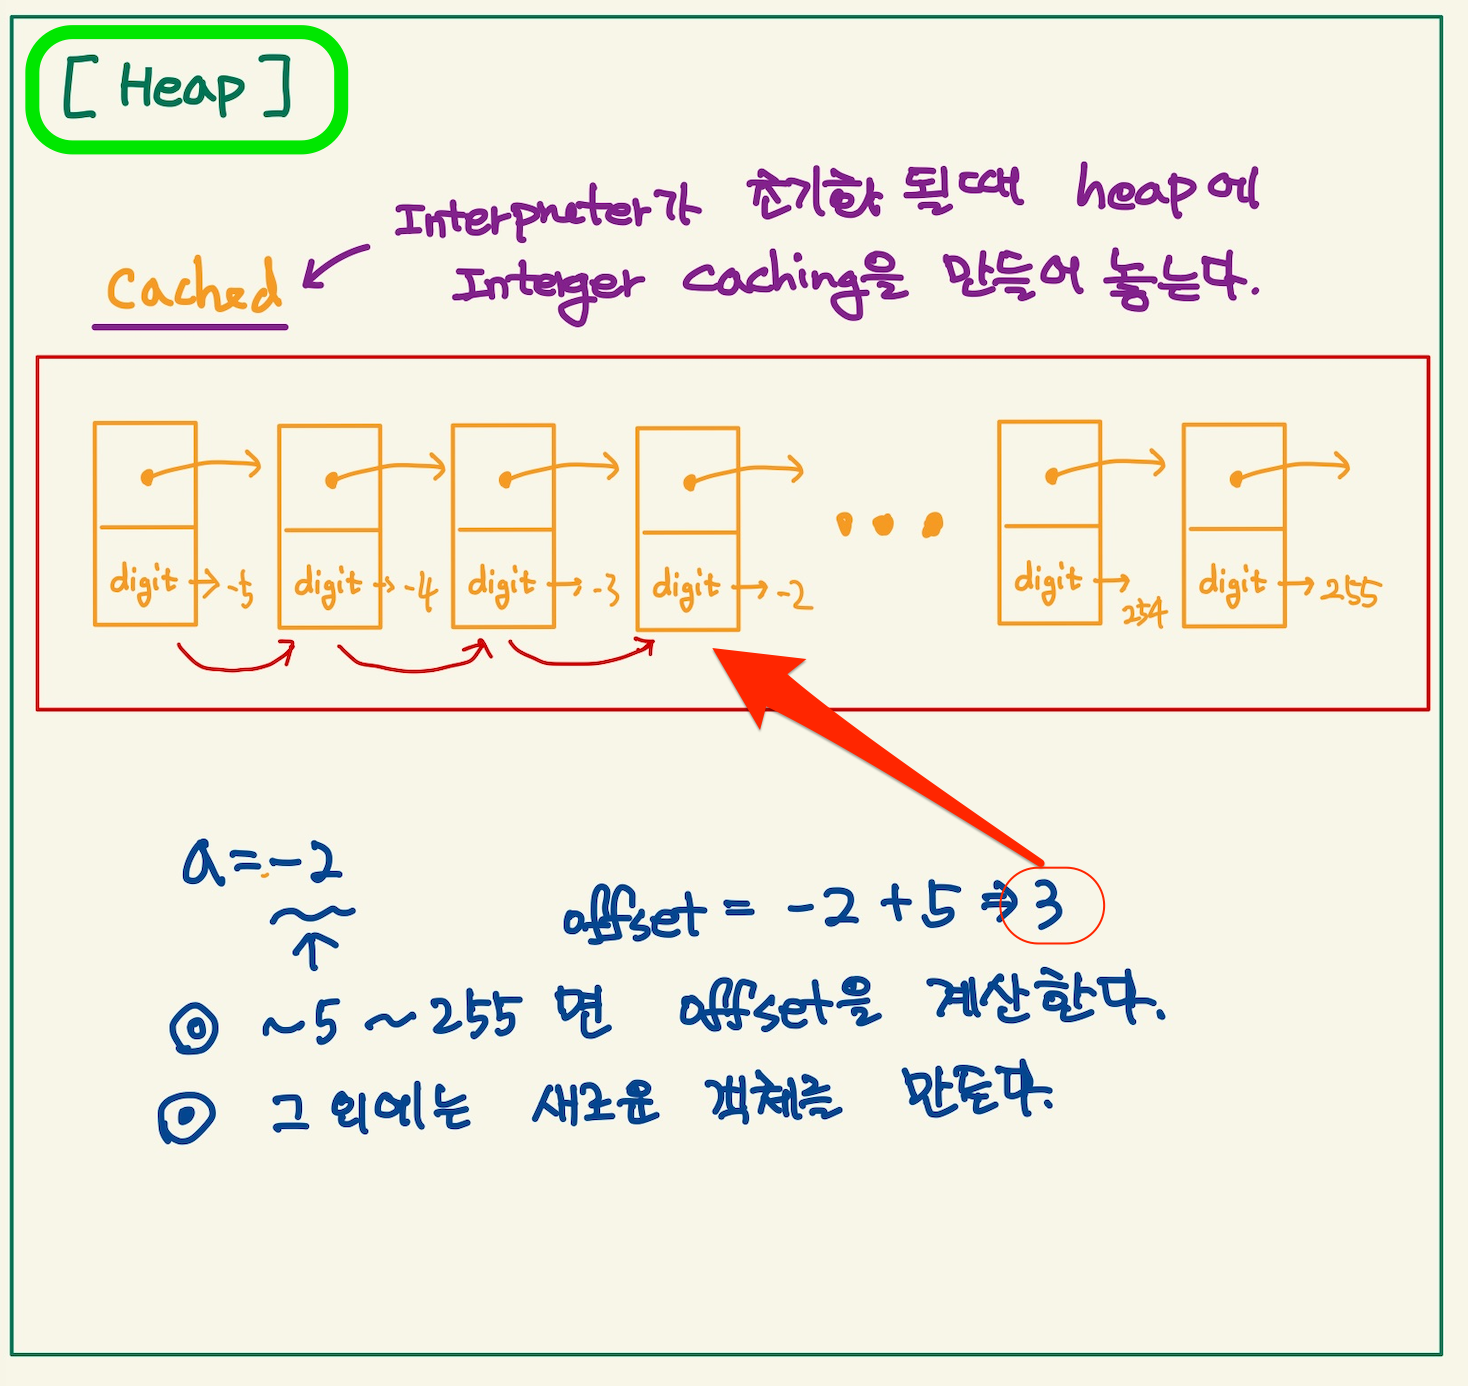 [ Heap ]
Interpreter가 초기화 될때 heap에
Cached
Interger caching을 만들어 놓는다.
digit → -5
digit → -4
digit → -3
digit → -2
digit → 254
digit → 255
a = -2
offset = -2 + 5 ⇒ 3
~5 ~ 255 면 offset을 계산한다.
그 외에는 새로운 객체를 만든다.